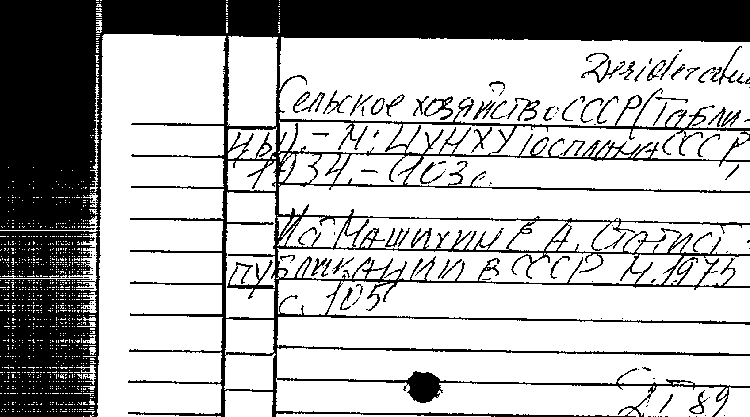 Desideratum
Сельское хозяйство СССР (Табли-
цы). – М: ЦУНХУ Госплана СССР,
1934. – 103 с.
Ист Машихин Е А. Статист
публикации в СССР М. 1975
с. 105
89